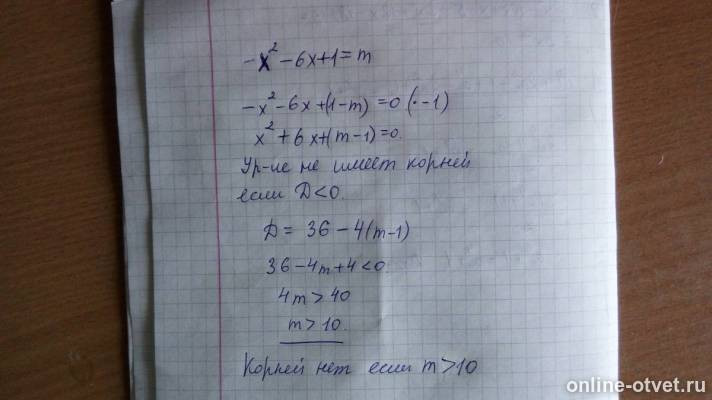 -x² - 6x + 1 = m
-x² - 6x + (1 - m) = 0 (· -1)
x² + 6x + (m - 1) = 0.
Ур-ие не имеет корней
если D < 0.
D = 36 - 4(m - 1)
36 - 4m + 4 < 0
4m > 40
m > 10.
Корней нет если m > 10
online-otvet.ru